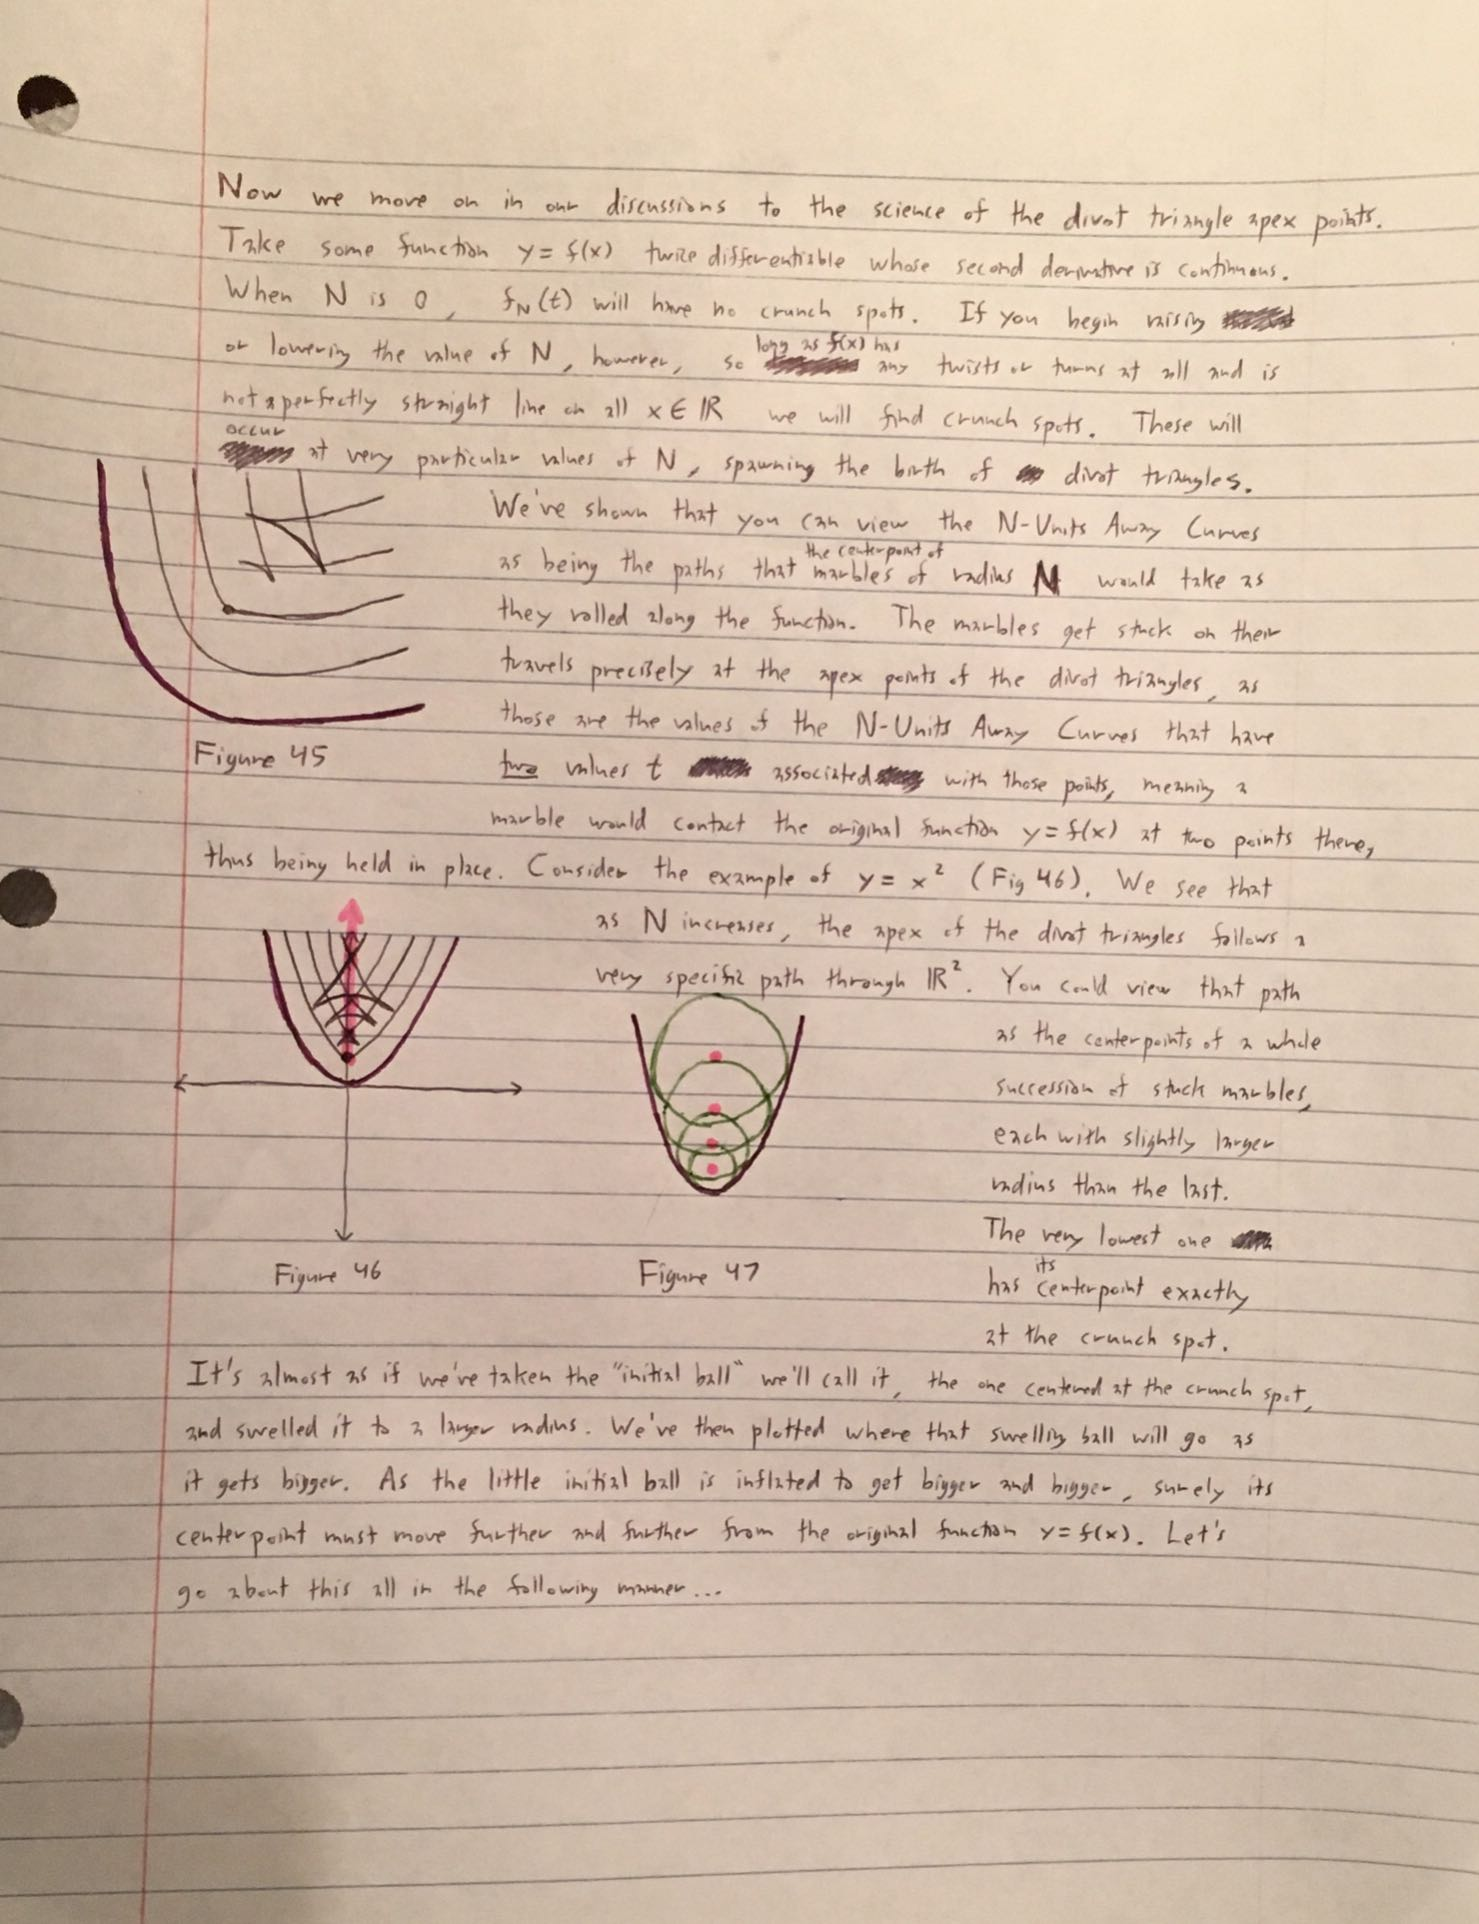 Now we move on in our discussions to the science of the divot triangle apex points.
Take some function y = f(x) twice differentiable whose second derivative is continuous.
When N is 0, fN(t) will have no crunch spots. If you begin raising
or lowering the value of N, however, so long as f(x) has any twists or turns at all and is
not a perfectly straight line on all x ∈ ℝ we will find crunch spots. These will
occur at very particular values of N, spawning the birth of divot triangles.
We've shown that you can view the N-Units Away Curves
as being the paths that the centerpoint of marbles of radius N would take as
they rolled along the function. The marbles get stuck on their
travels precisely at the apex points of the divot triangles, as
those are the values of the N-Units Away Curves that have
two values t associated with those points, meaning a
marble would contact the original function y = f(x) at two points there,
Figure 45
thus being held in place. Consider the example of y = x² (Fig 46). We see that
as N increases, the apex of the divot triangles follows a
very specific path through ℝ². You could view that path
as the centerpoints of a whole
succession of stuck marbles,
each with slightly larger
radius than the last.
The very lowest one
has its centerpoint exactly
at the crunch spot.
Figure 46
Figure 47
It's almost as if we've taken the "initial ball" we'll call it, the one centered at the crunch spot,
and swelled it to a larger radius. We've then plotted where that swelling ball will go as
it gets bigger. As the little initial ball is inflated to get bigger and bigger, surely its
centerpoint must move further and further from the original function y = f(x). Let's
go about this all in the following manner...